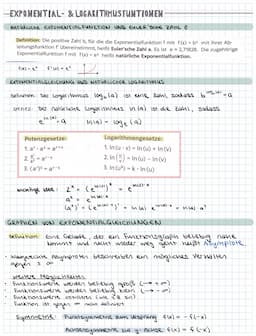 EXPONENTIAL- & LOGARITHMUSFUNKTIONEN
NATÜRLICHE EXPONENTIALFUNKTION UND EULER'SCHE ZAHL e
Definition: Die positive Zahl b, für die die Exponentialfunktion f mit f(x) = bˣ mit ihrer Ab-
leitungsfunktion f' übereinstimmt, heißt Euler'sche Zahl e. Es ist e ≈ 2,71828. Die zugehörige
Exponentialfunktion f mit f(x) = eˣ heißt natürliche Exponentialfunktion.
f(x) = eˣ f'(x) = eˣ
EXPONENTIALGLEICHUNG UND NATÜRLICHER LOGARITHMUS
Definition: Der Logarithmus log_b(a) ist eine Zahl, sodass b^(log_b(a)) = a
Der natürliche Logarithmus ln(a) ist die Zahl, sodass
e^(ln(a)) = a ln(a) = log_e(a)
Potenzgesetze: Logarithmengesetze:
1. ln(u · v) = ln(u) + ln(v)
2. ln(u/v) = ln(u) − ln(v)
3. ln(uᵏ) = k · ln(u)
GRAPHEN VON EXPONENTIALGLEICHUNGEN
Definition: eine Gerade, der ein Funktionsgraph beliebig nahe
kommt und nicht wieder weg geht heißt Asymptote.
Waagerechte Asymptoten beschreiben ein mögliches Verhalten
gegen ± ∞
weitere Möglichkeiten:
Funktionswerte werden beliebig groß (→ +∞)
Funktionswerte werden beliebig klein (→ −∞)
Symmetrie: Punktsymmetrie zum Ursprung f(x) = −f(−x)
Achsensymmetrie zur y-Achse f(x) = f(−x)